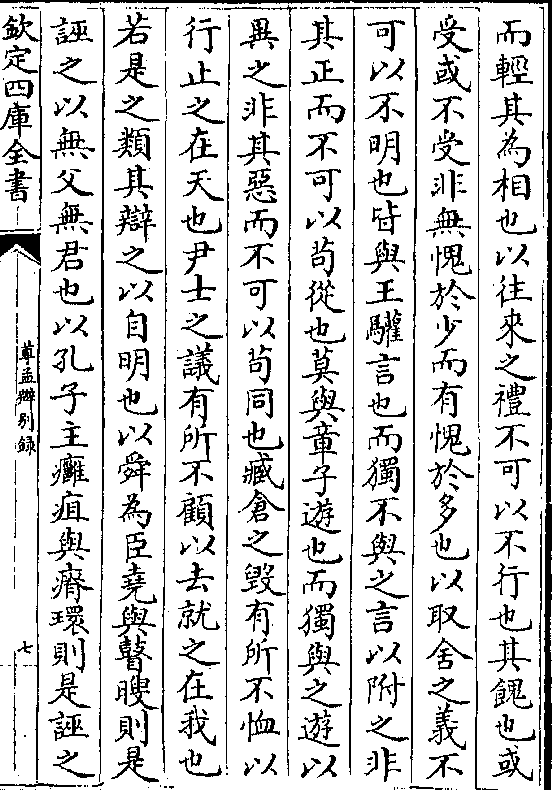 而輕其為相也以往來之禮不可以不行也其餽也或
受或不受非無愧於少而有愧於多也以取舍之義不
可以不明也皆與王驩言也而獨不與之言以附之非
其正而不可以茍從也莫與章子遊也而獨與之遊以
異之非其惡而不可以茍同也臧倉之毀有所不恤以
行止之在天也尹士之議有所不顧以去就之在我也
若是之類其辯之以自明也以舜為臣堯與瞽瞍則是
誣之以無父無君也以孔子主癰疽與瘠環則是誣之
欽定四庫全書
尊孟辨別録
七